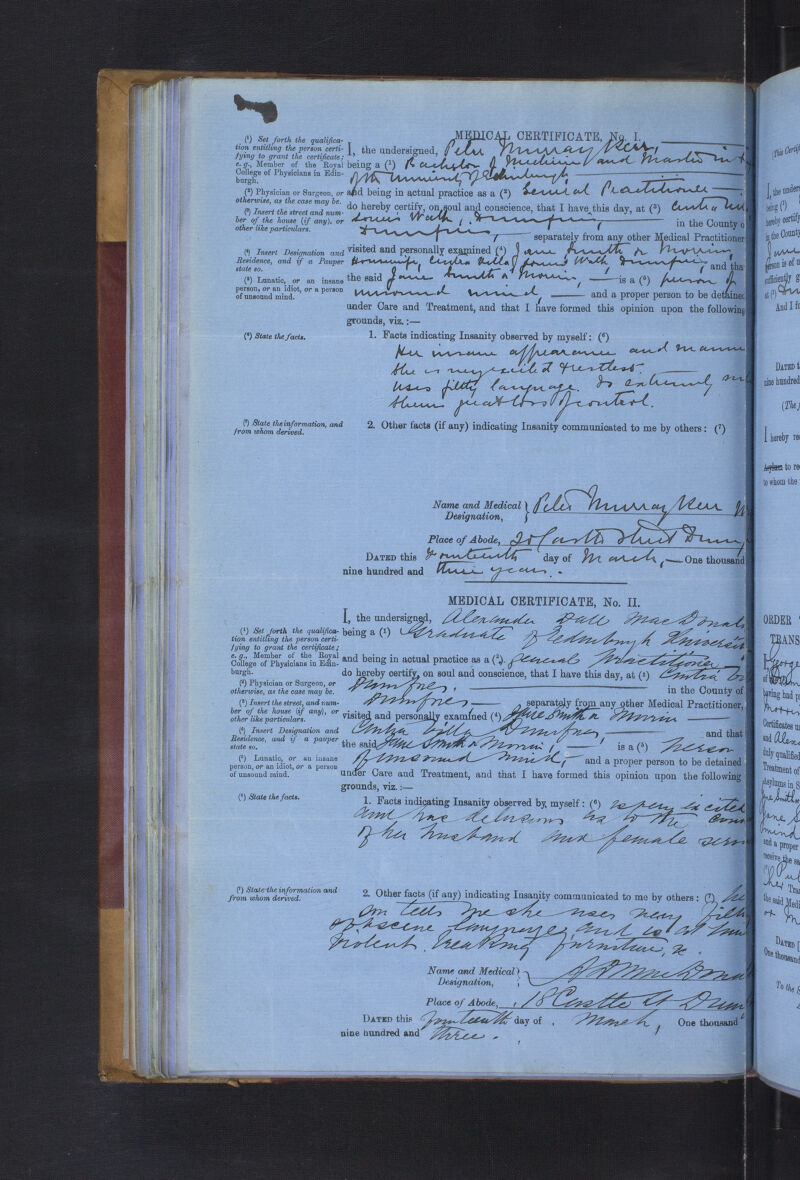 MEDICAL CERTIFICATE, No. I.
(¹) Set forth the qualifica-
tion entitling the person certi-
fying to grant the certificate;
e.g., Member of the Royal
College of Physicians in Edin-
burgh.
(²) Physician or Surgeon, or
otherwise, as the case may be.
(³) Insert the street and num-
ber of the house (if any), or
other like particulars.
(⁴) Insert Designation and
Residence, and if a Pauper
state so.
(⁵) Lunatic, or an insane
person, or an idiot, or a person
of unsound mind.
I, the undersigned, Peter Murray Kerr,
being a (¹) Bachelor of Medicine and Master in
of the University of Edinburgh
and being in actual practice as a (²) General Practitioner
do hereby certify, on soul and conscience, that I have this day, at (³)
Walk, Dumfries, in the County o
Dumfries, separately from any other Medical Practitioner
visited and personally examined (⁴) Jane Smith or Morrin,
Housewife, Villa, Walk, Dumfries, and tha
the said Jane Smith or Morrin, is a (⁵) person of
unsound mind, and a proper person to be detained
under Care and Treatment, and that I have formed this opinion upon the following
grounds, viz.:—
(⁶) State the facts.
1. Facts indicating Insanity observed by myself: (⁶)
Her insane appearance and manne
She is very excited & restless.
Uses filthy language. Is extremely
Shews great loss of control.
(⁷) State the information, and
from whom derived.
2. Other facts (if any) indicating Insanity communicated to me by others: (⁷)
Name and Medical Designation, } Peter Murray Kerr M
Place of Abode, 20 Castle Street Dum
DATED this Fourteenth day of March, One thousand
nine hundred and three years.
MEDICAL CERTIFICATE, No. II.
(¹) Set forth the qualifica-
tion entitling the person certi-
fying to grant the certificate;
e.g., Member of the Royal
College of Physicians in Edin-
burgh.
(²) Physician or Surgeon, or
otherwise, as the case may be.
(³) Insert the street, and num-
ber of the house (if any), or
other like particulars.
(⁴) Insert Designation and
Residence, and if a pauper
state so.
(⁵) Lunatic, or an insane
person, or an idiot, or a person
of unsound mind.
I, the undersigned, Alexander Dall MacDonald
being a (¹) Graduate of Edinburgh Universit
and being in actual practice as a (²) general Practitioner
do hereby certify, on soul and conscience, that I have this day, at (³)
Dumfries. in the County of
Dumfries separately from any other Medical Practitioner,
visited and personally examined (⁴) Jane Smith or Morrin
Villa Dumfries, and that
the said Jane Smith or Morrin, is a (⁵) person
of unsound mind, and a proper person to be detained
under Care and Treatment, and that I have formed this opinion upon the following
grounds, viz.:—
(⁶) State the facts.
1. Facts indicating Insanity observed by myself: (⁶) is very excited
and has delusions as to the
of her husband and female serv
(⁷) State the information and
from whom derived.
2. Other facts (if any) indicating Insanity communicated to me by others: (⁷)
tells me she uses very filth
obscene language and is at
violent breaking furniture, &c
Name and Medical Designation, } A D MacDona
Place of Abode, 18 Castle St Dum
DATED this fourteenth day of March, One thousand
nine hundred and three.
(This Certif
I, the under
being (¹)
hereby certif
in the County
person is of u
sufficiently g
And I f
DATED t
nine hundred
(The
I hereby re
Asylum to re
to whom the
ORDER
TRANS
George
having had p
Certificates u
and Alex
duly qualified
Treatment of
Asylums in S
Jane Smith
mind
and a proper
receive the sa
the said Medi
DATED
One thousand
To the S